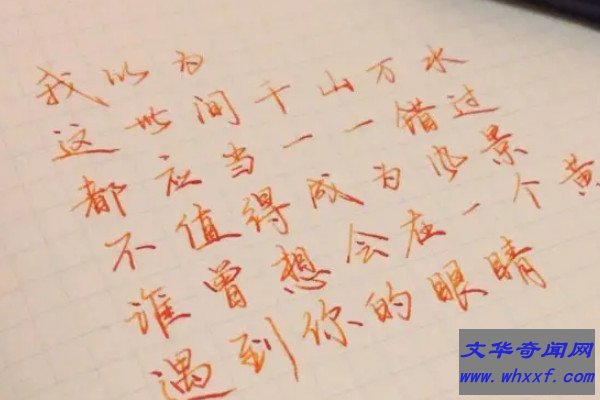 我以为
这世间千山万水
都应当一一错过
不值得成为风景
谁曾想会在一个黄
遇到你的眼睛
文华奇闻网
www.whxxf.com